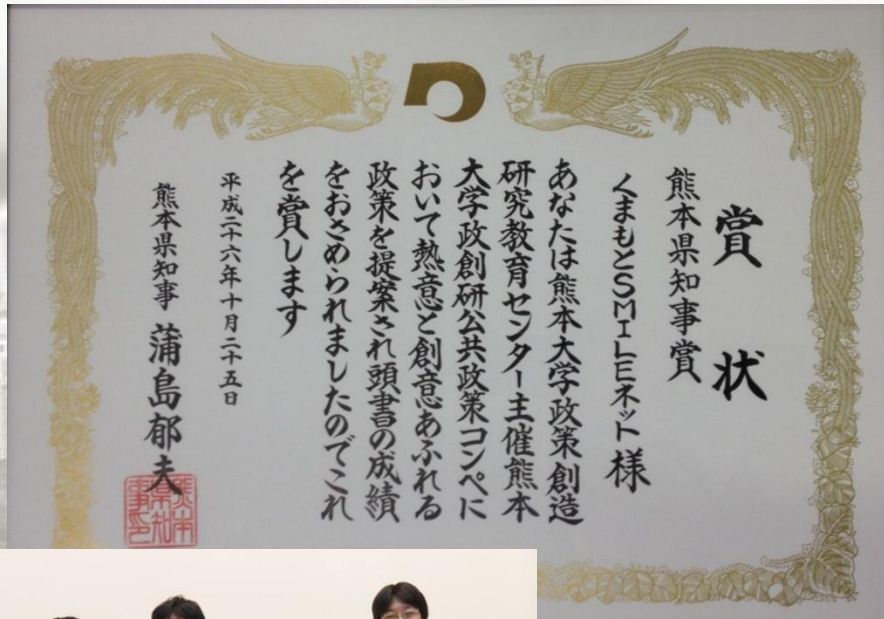 賞状
熊本県知事賞
くまもとSMILEネット様
あなたは熊本大学政策創造
研究教育センター主催熊本
大学政創研公共政策コンペに
おいて熱意と創意あふれる
政策を提案され頭書の成績
をおさめられましたのでこれ
を賞します
平成二十六年十月二十五日
熊本県知事 蒲島郁夫
熊本県知事印